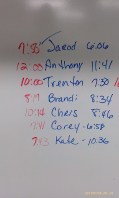 7:35 Jarod 6:06
12:00 Anthony 11:41
10:00 Trenton 7:30
8:19 Brandi 8:34
10:14 Chris 8:46
Corey - 6:58
7:33 Kate - 10:36